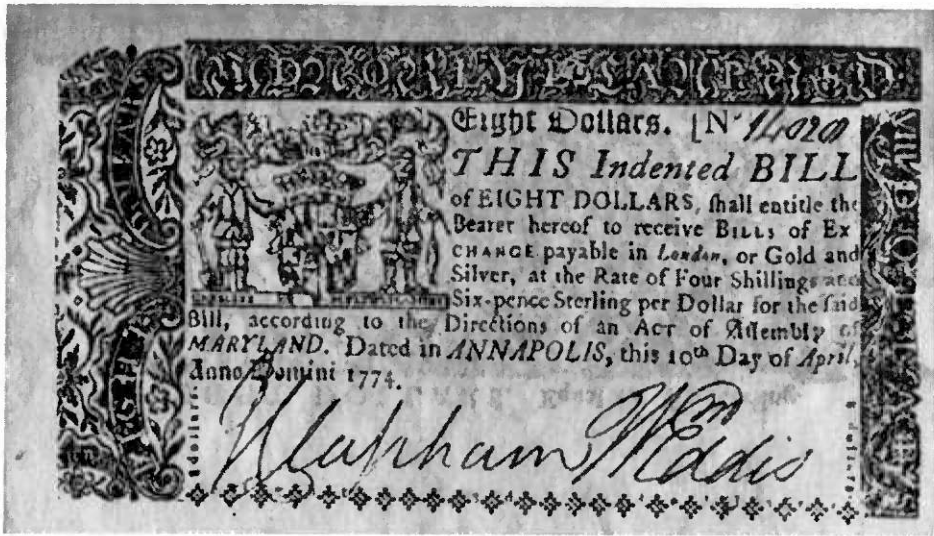 Eight Dollars. [Nº 14020
THIS Indented BILL
of EIGHT DOLLARS, shall entitle the
Bearer hereof to receive BILLS of EX
CHANGE payable in London, or Gold and
Silver, at the Rate of Four Shillings and
Six-pence Sterling per Dollar for the said
Bill, according to the Directions of an Act of Assembly of
MARYLAND. Dated in ANNAPOLIS, this 10th Day of April,
Anno Domini 1774.
Clapham Wm Eddis